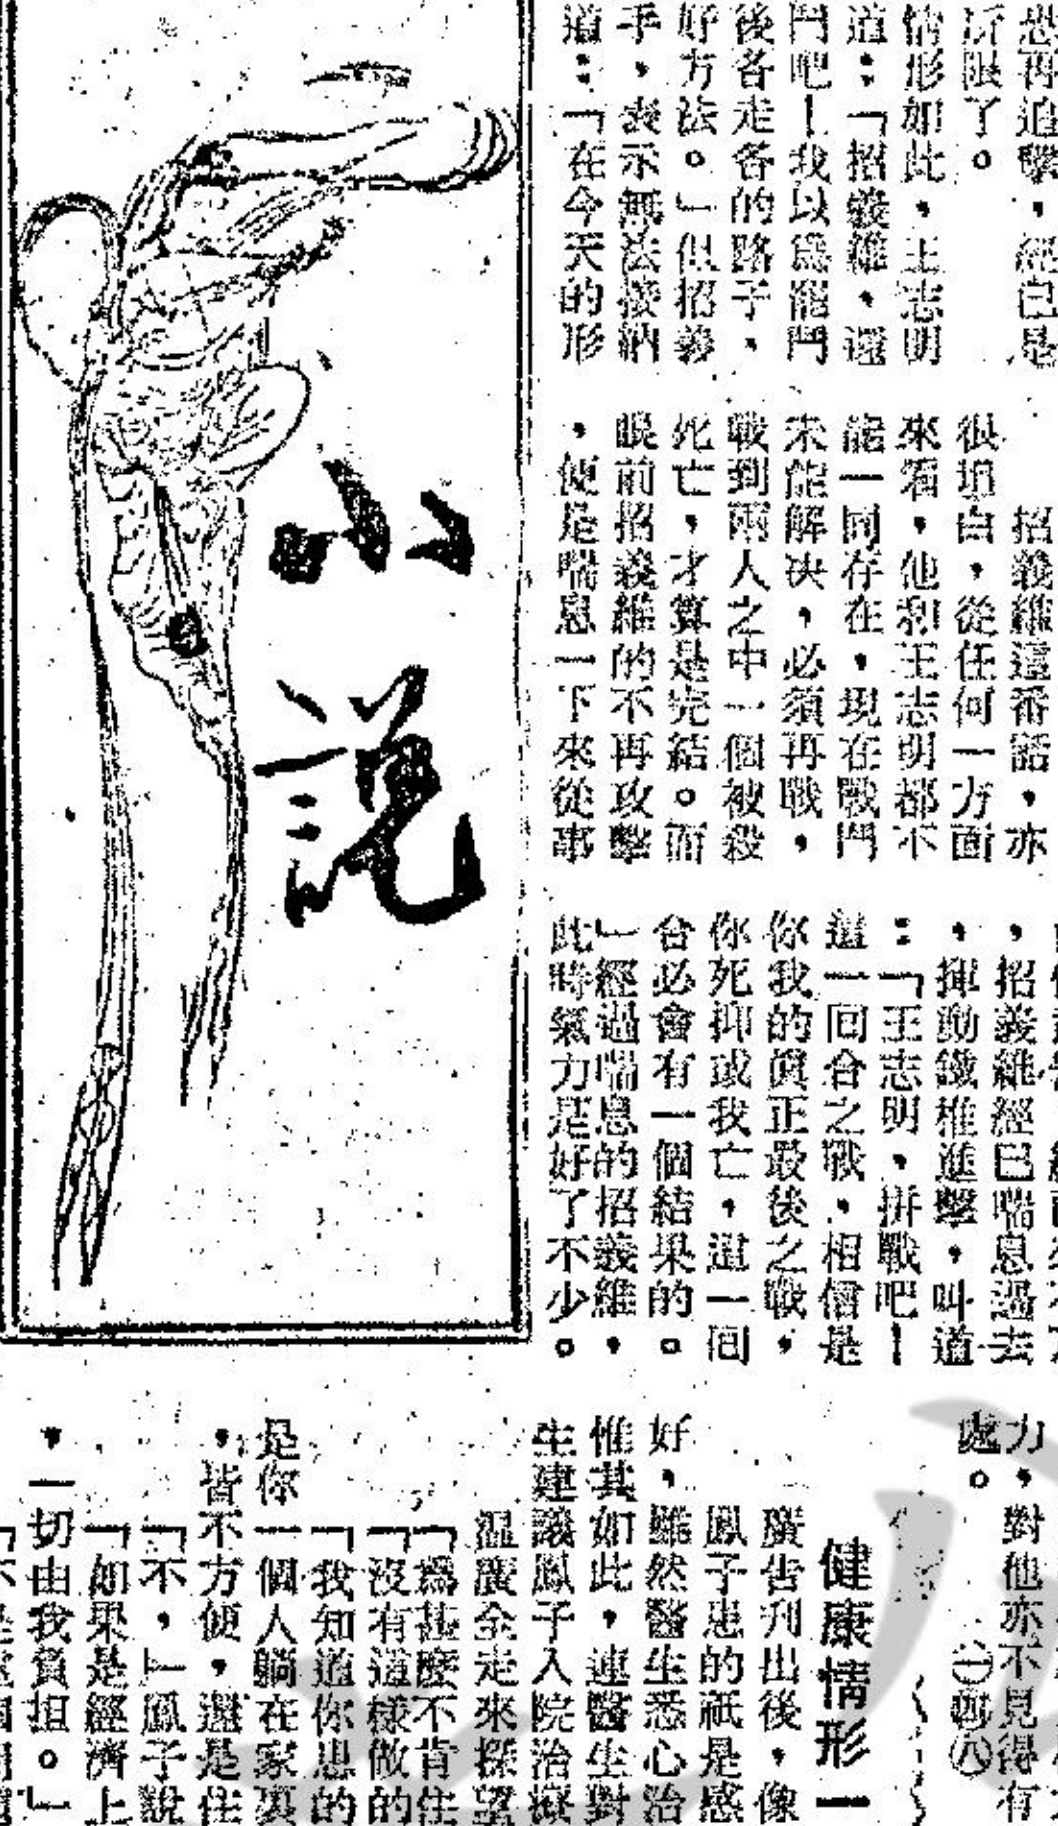 恐再追擊,經已是
所限了。
情形如此,王志明
道:「招義維,還
鬥吧!我以爲罷鬥
後各走各的路子,
好方法。」但招義
手,表示無法接納
道:「在今天的形
招義維這番話,亦
很坦白,從任何一方面
來看,他和王志明都不
能一同存在,現在戰鬥
未能解决,必須再戰,
戰到兩人之中一個被殺
死亡,才算是完結。而
眼前招義維的不再攻擊
,便是喘息一下來從事
,招義維經已喘息過去
,揮動鐵椎進擊,叫道
:「王志明,拼戰吧!
這一回合之戰,相信是
你我的眞正最後之戰,
你死抑或我亡,這一回
合必會有一個結果的。
」經過喘息的招義維,
此時氣力是好了不少。
小說
力,對他亦不見得有
處。
健康情形一
廣告刋出後,像
鳳子患的祇是感
好,雖然醫生悉心治
惟其如此,連醫生對
生建議鳳子入院治療
溫廣全走來探望
「爲甚麼不肯住
「沒有這樣做的
「我知道你患的
是你一個人躺在家裏
,皆不方便,還是住
「不,」鳳子說
「如果是經濟上
,一切由我負担。」